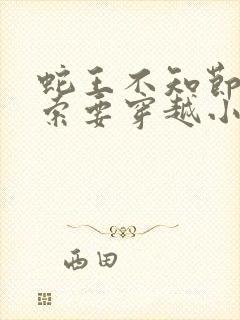 蛇王不知节
索要穿越小
西田